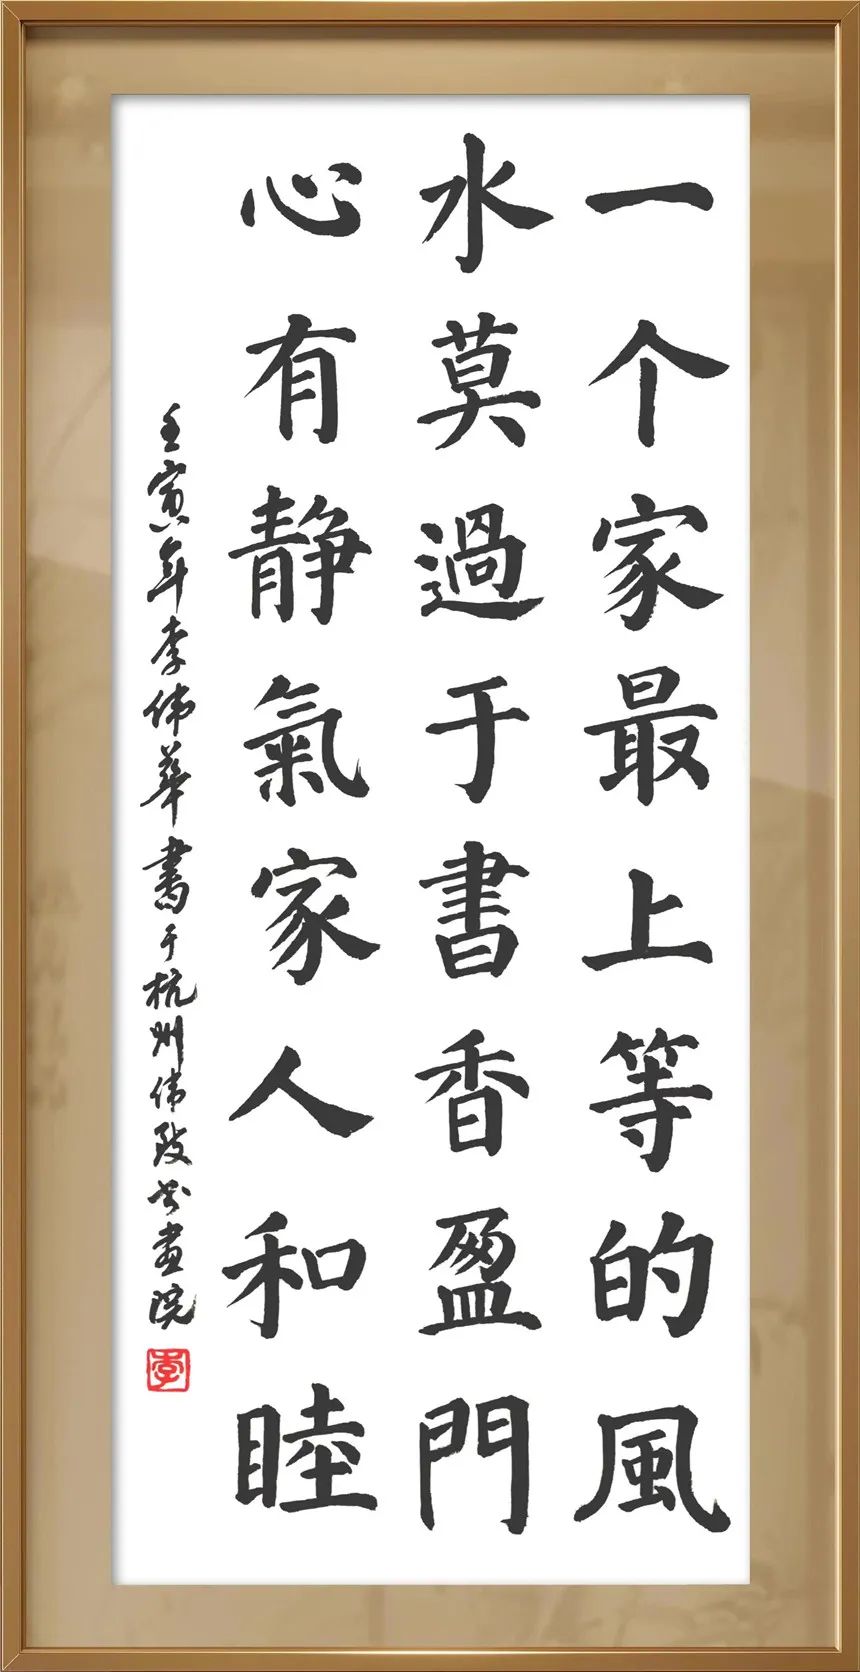 一个家最上等的風
水莫過于書香盈門
心有静氣家人和睦
壬寅年李伟華書于杭州伟致書画院
李